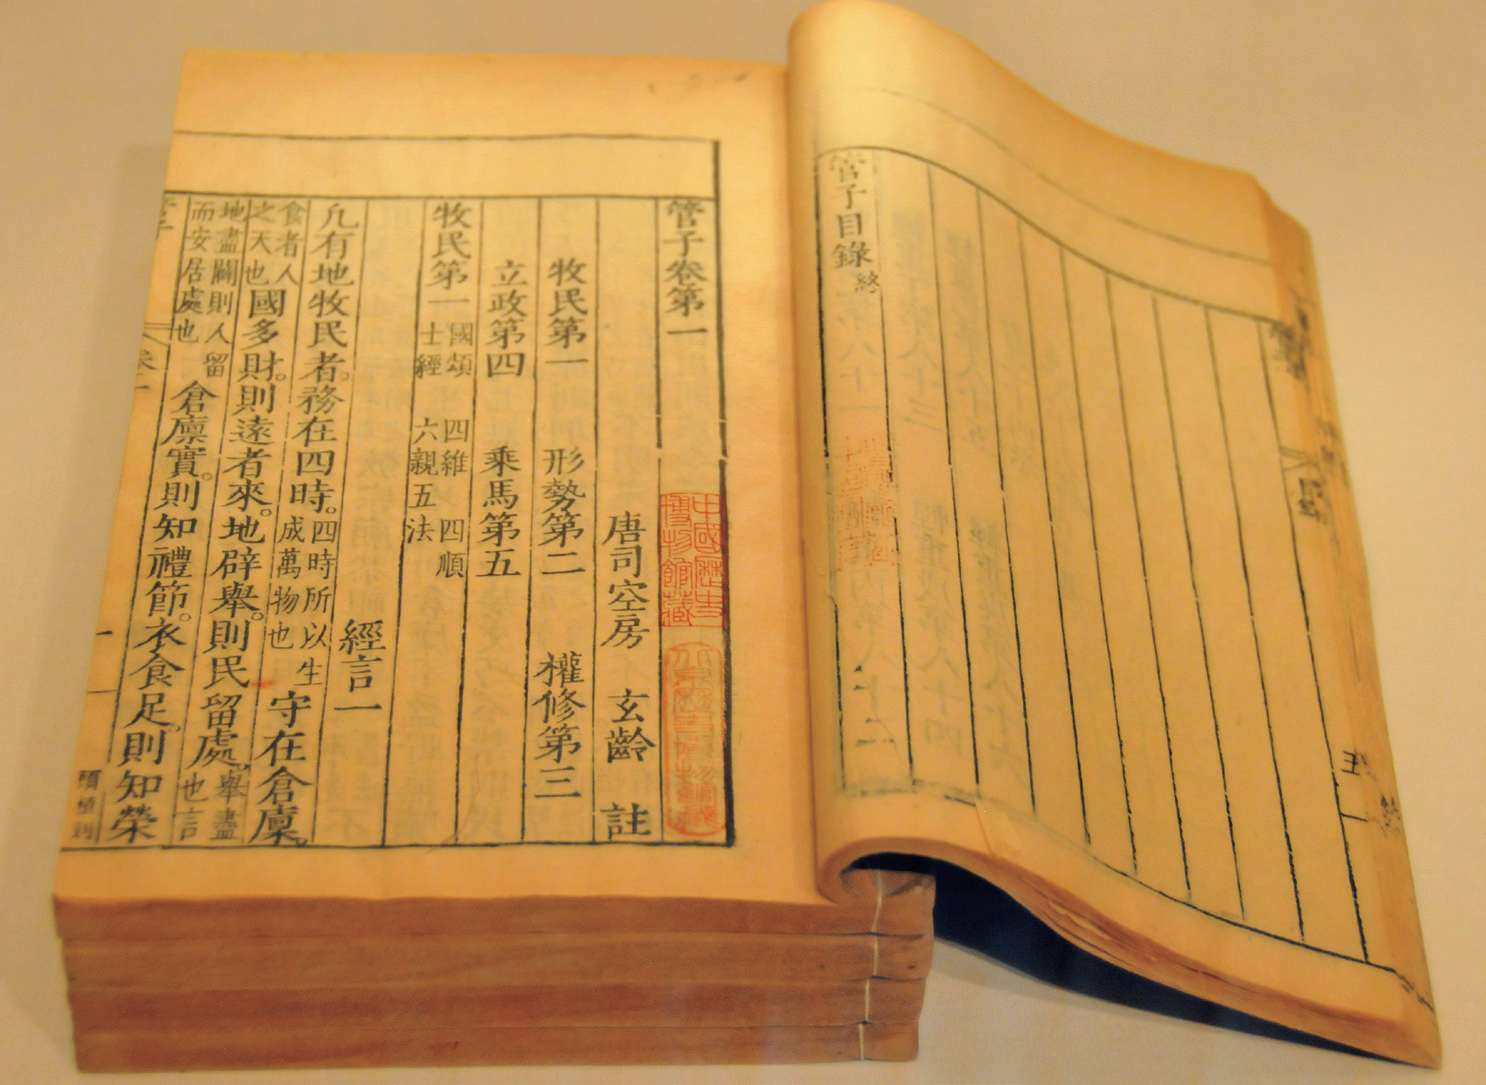 管子目錄終
管子卷第一
中國歷史博物館藏
唐司空房 玄齡 註
牧民第一 形勢第二 權修第三
立政第四 乘馬第五
牧民第一 國頌 四維 四順 士經 六親五法
經言一
凢有地牧民者。務在四時。四時所以生成萬物也守在倉廩。
食者人之天也國多財。則遠者來。地辟舉。則民留處。舉盡也言
地盡闢則人留而安居處也倉廩實。則知禮節。衣食足。則知榮